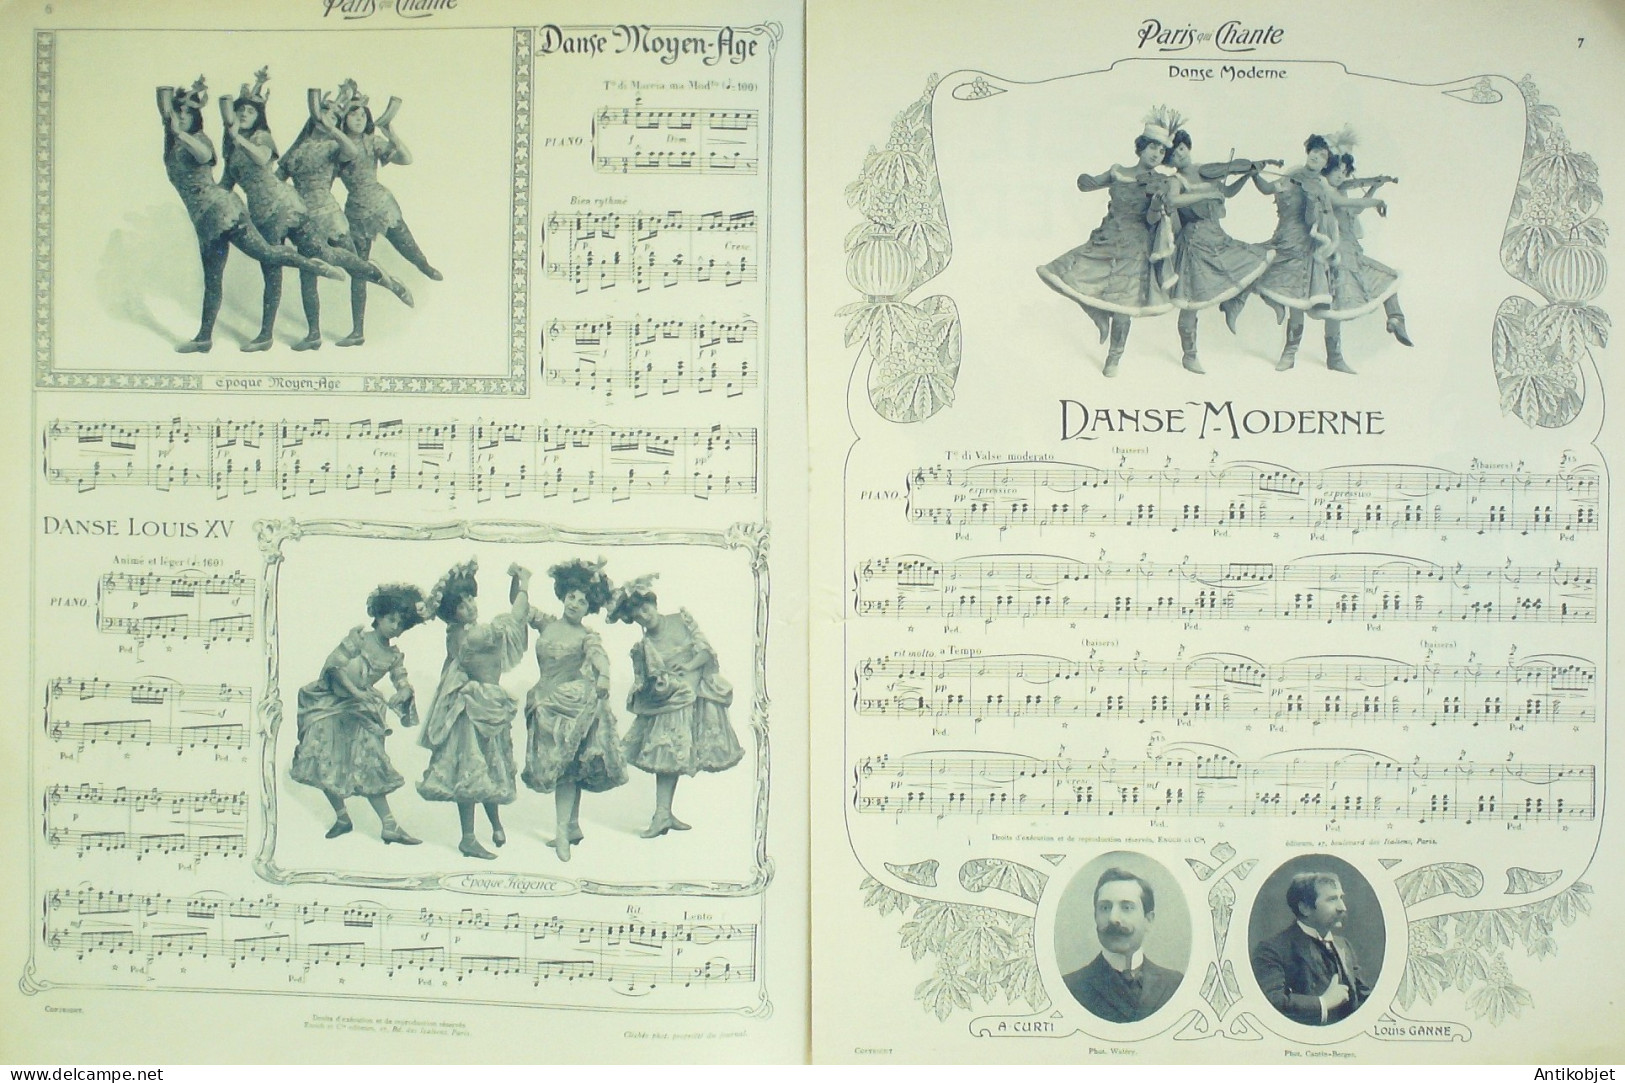 6
Paris qui Chante
Danse Moyen-Age
Tº di Mazurka ma Modto (♩=100)
PIANO.
f
Dim.
Bien rythmé
f p.
f p.
Cresc.
f p.
f p.
Epoque Moyen-Age
pp
f p.
f p.
Cresc
f
f p.
f p.
pp
DANSE LOUIS XV
Animé et léger (♩=160)
PIANO.
p
sf
Ped.
sf
Ped.
Ped.
Ped.
Epoque Régence
Rit.
Lento
mf
sf
p
sf
p
p
Ped.
Ped.
Ped.
Ped.
COPYRIGHT.
Droits d'exécution et de reproduction réservés.
Enoch et Cie éditeurs, 27, Bd. des Italiens, Paris.
Clichés phot. propriété du journal.
Paris qui Chante
7
Danse Moderne
DANSE MODERNE
Tº di Valse moderato
(baisers)
(baisers)
PIANO.
pp
espressivo
p
pp
espressivo
p
Ped.
Ped.
Ped.
p
mf
Ped.
Ped.
Ped.
rit molto.
a Tempo
(baisers)
(baisers)
pp
p
pp
p
Ped.
Ped.
Ped.
Ped.
pp
p
cresc.
mf
pp
f
p
Ped.
Ped.
Ped.
Droits d'exécution et de reproduction réservés, Enoch et Cie,
éditeurs, 27, boulevard des Italiens, Paris.
A. CURTI
LOUIS GANNE
COPYRIGHT
Phot. Walery.
Phot. Cautin-Berger.
Antikobjet
delcampe.net